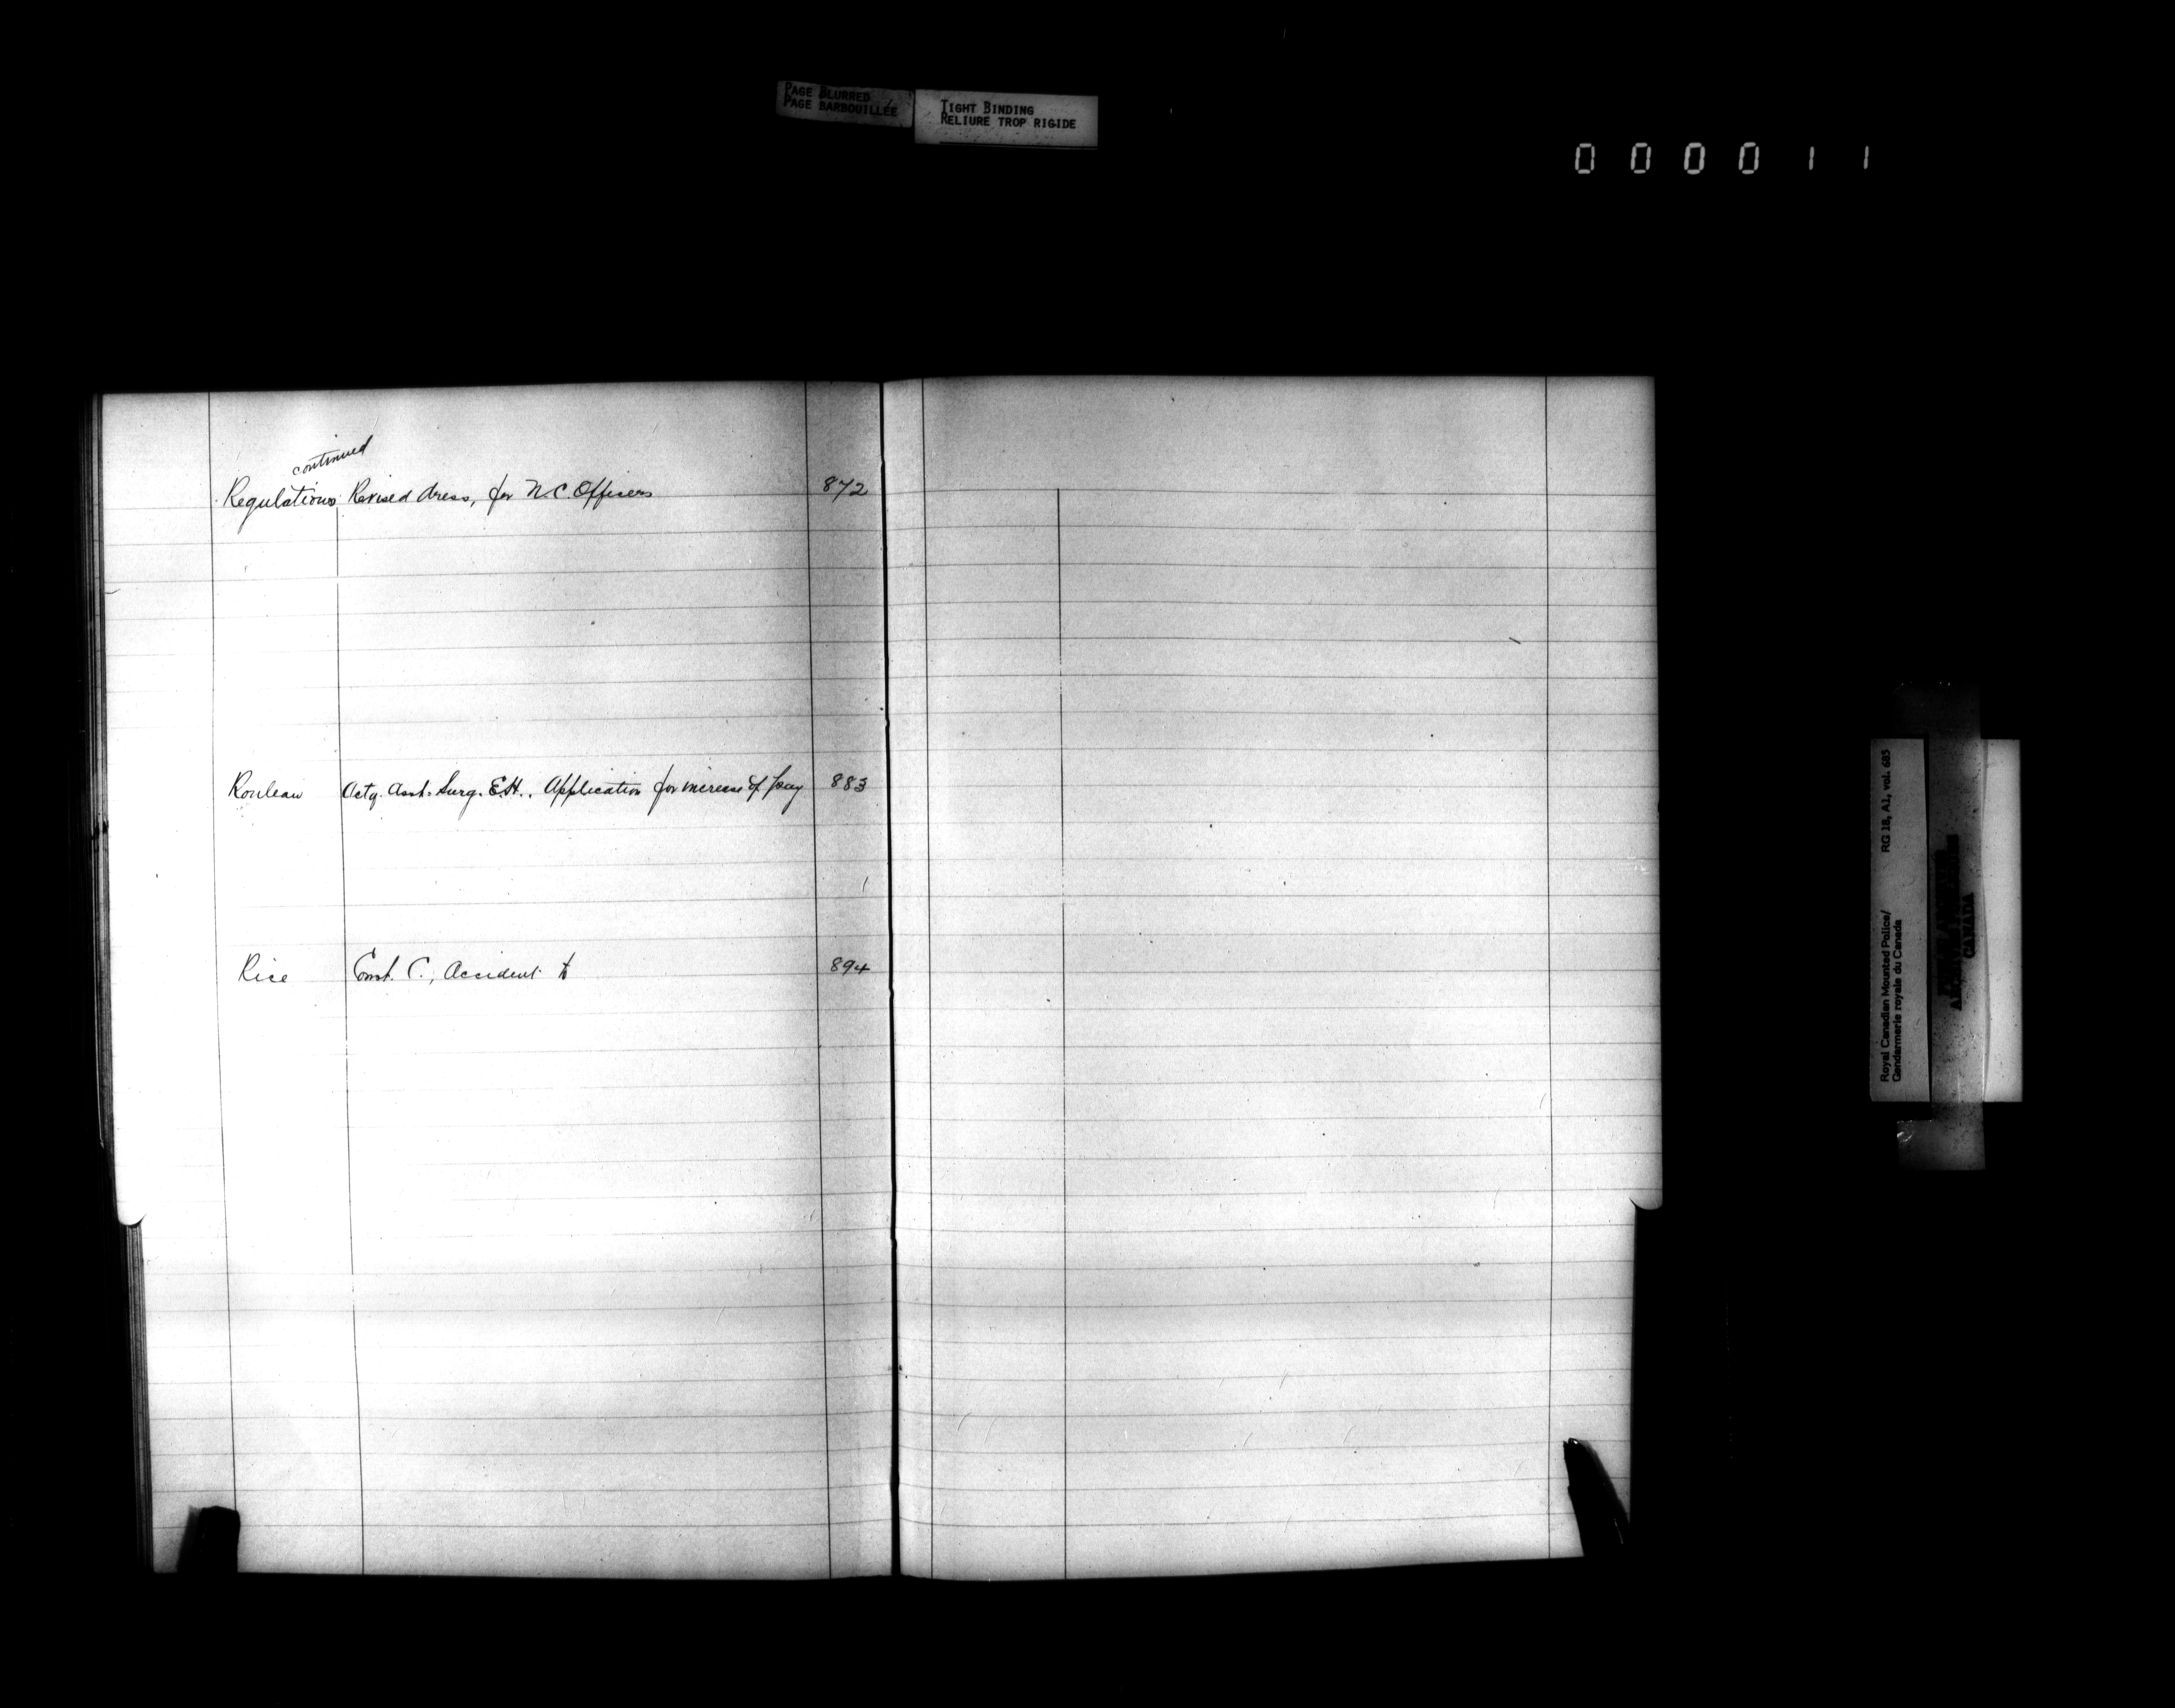 PAGE BLURRED
PAGE BARBOUILLÉE
TIGHT BINDING
RELIURE TROP RIGIDE
000011
continued
Regulations Revised dress, for N.C. Officers 872
Rouleau Actg. Asst. Surg. E.H., Application for increase of pay 883
Rice Const. C., Accident to 894
Royal Canadian Mounted Police/ RG 18, A1, vol. 685
Gendarmerie royale du Canada
CANADA